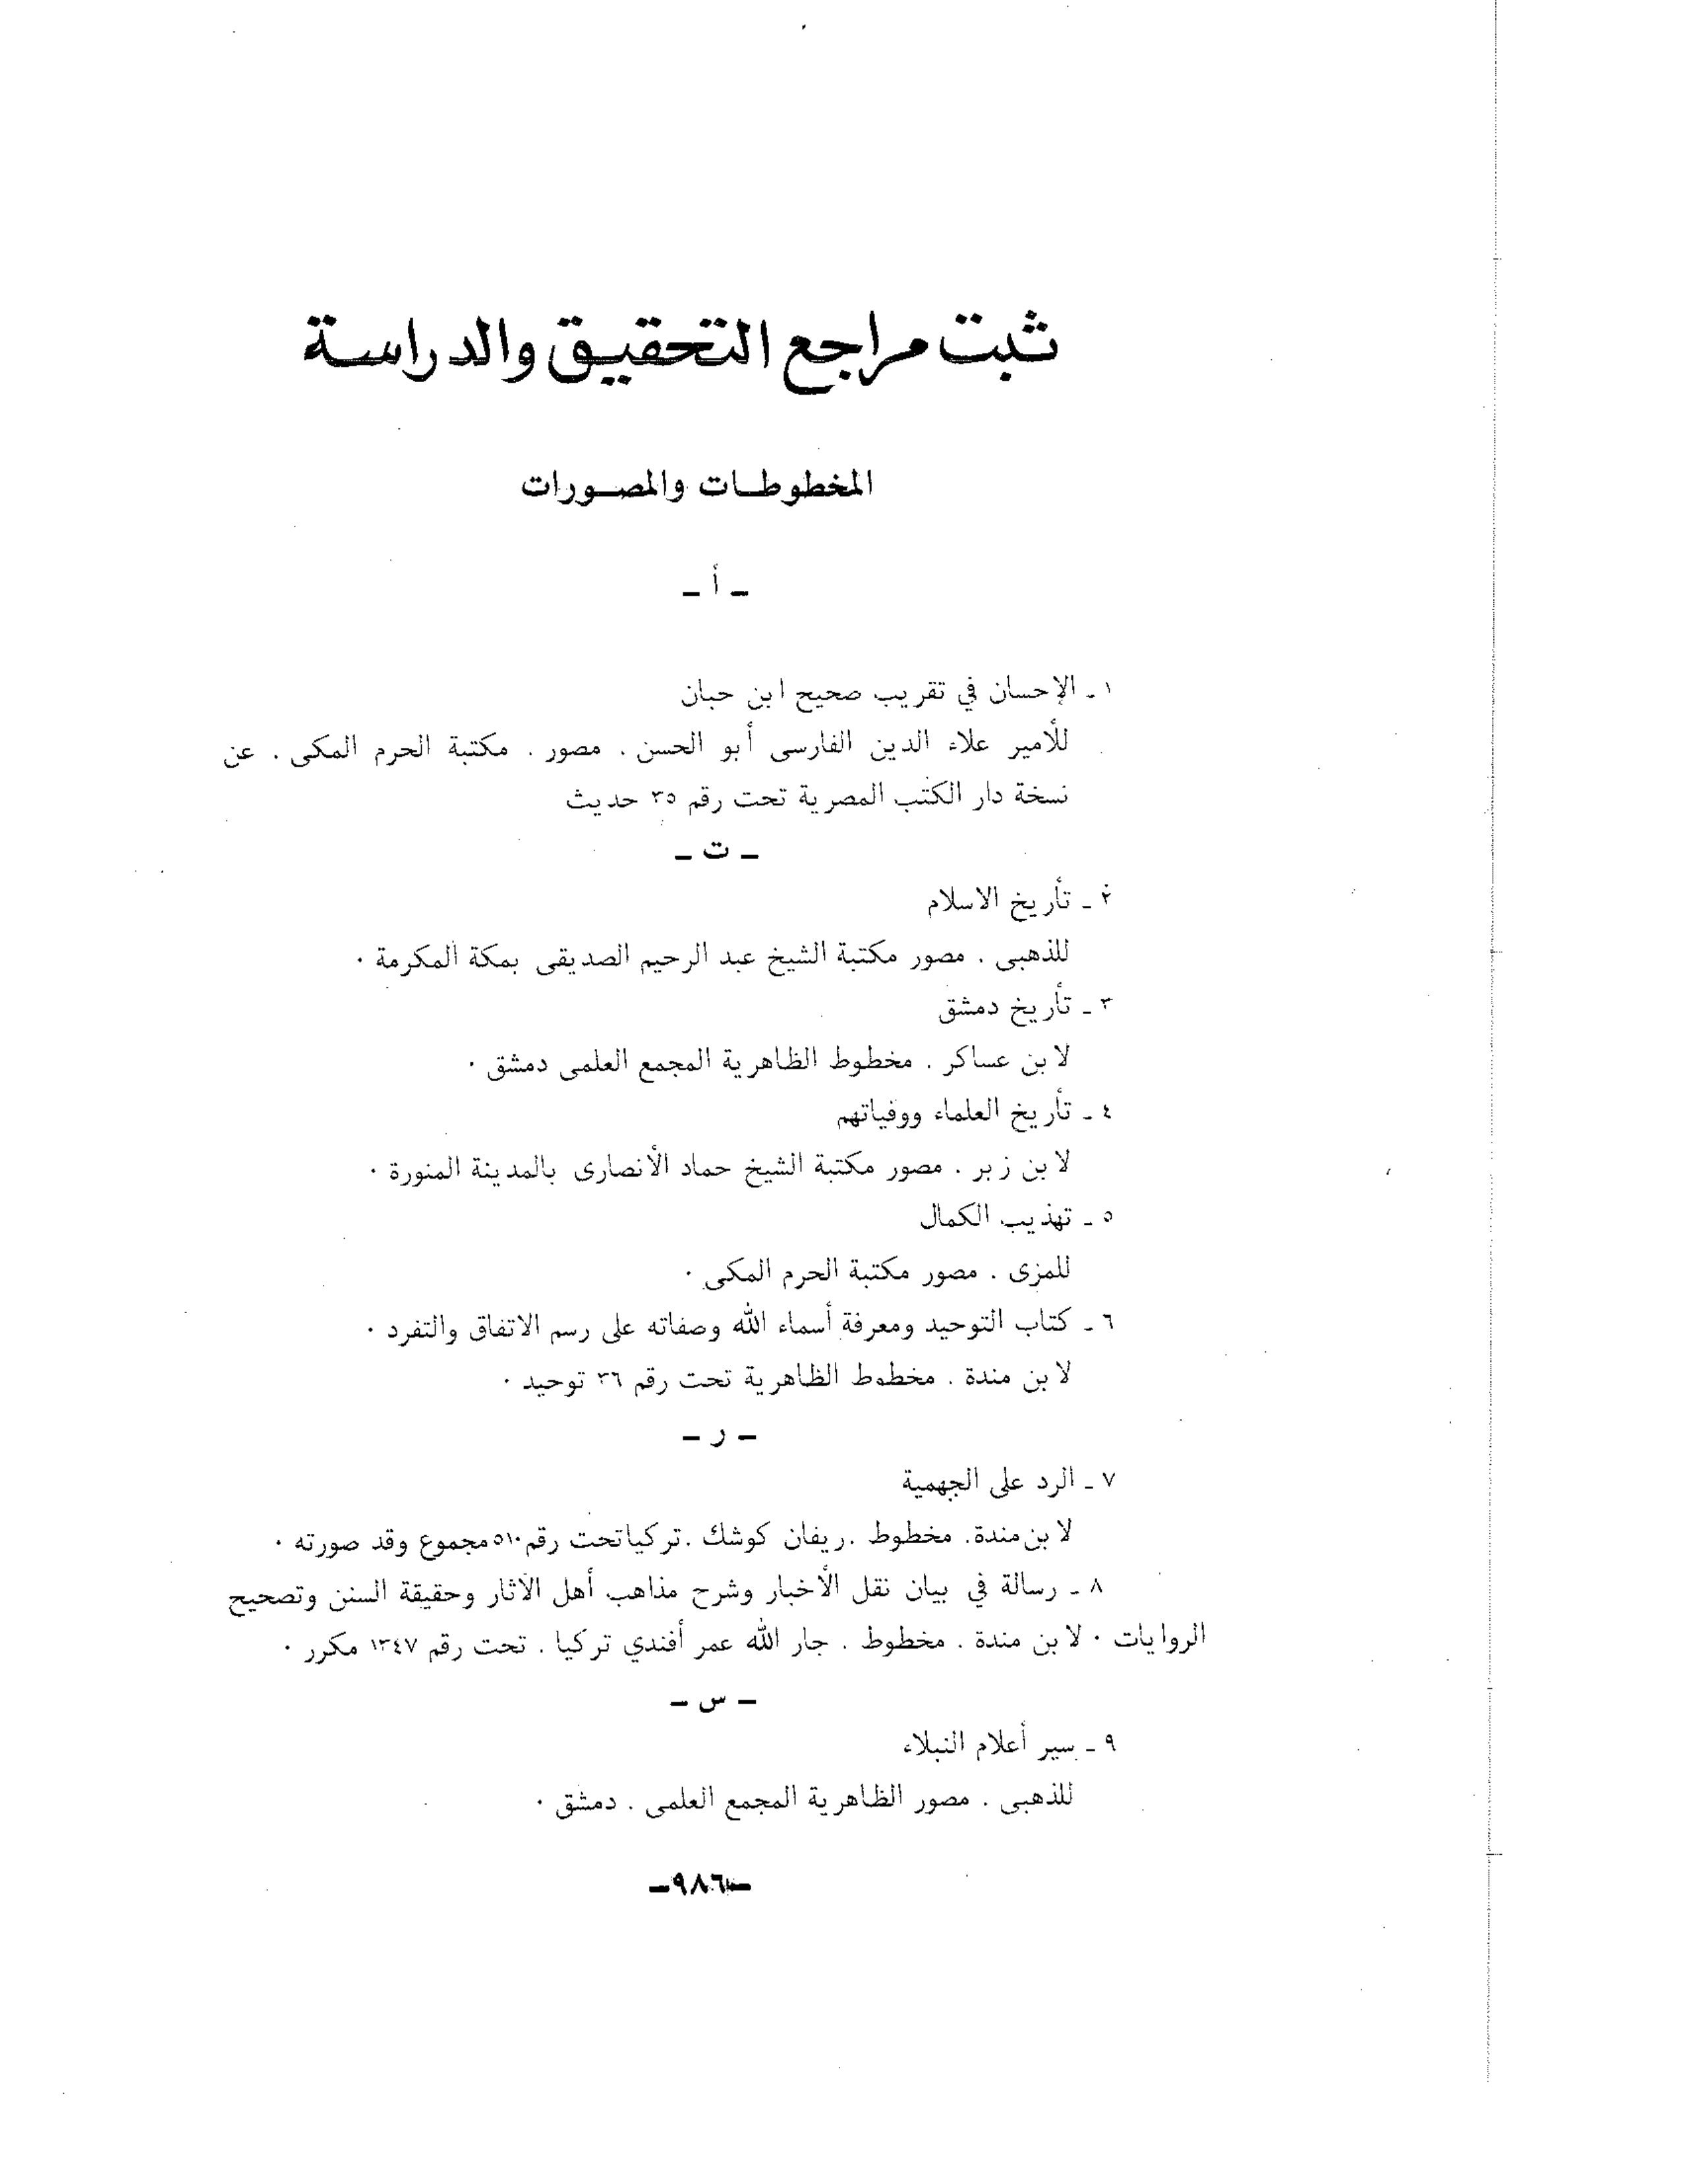 ثبت مراجع التحقيق والدراسة
المخطوطات والمصورات
ـ أ ـ
١ ـ الإحسان في تقريب صحيح ابن حبان
للأمير علاء الدين الفارسى أبو الحسن . مصور . مكتبة الحرم المكى . عن
نسخة دار الكتب المصرية تحت رقم ٣٥ حديث
ـ ت ـ
٢ ـ تأريخ الاسلام
للذهبى . مصور مكتبة الشيخ عبد الرحيم الصديقى بمكة المكرمة .
٣ ـ تأريخ دمشق
لابن عساكر . مخطوط الظاهرية المجمع العلمى دمشق .
٤ ـ تأريخ العلماء ووفياتهم
لابن زبر . مصور مكتبة الشيخ حماد الأنصارى بالمدينة المنورة .
٥ ـ تهذيب الكمال
للمزى . مصور مكتبة الحرم المكى .
٦ ـ كتاب التوحيد ومعرفة أسماء الله وصفاته على رسم الاتفاق والتفرد .
لابن مندة . مخطوط الظاهرية تحت رقم ٣٦ توحيد .
ـ ر ـ
٧ ـ الرد على الجهمية
لابن مندة. مخطوط .ريفان كوشك .تركياتحت رقم٥١٠مجموع وقد صورته .
٨ ـ رسالة في بيان نقل الأخبار وشرح مذاهب أهل الآثار وحقيقة السنن وتصحيح
الروايات . لابن مندة . مخطوط . جار الله عمر أفندي تركيا . تحت رقم ١٣٤٧ مكرر .
ـ س ـ
٩ ـ سير أعلام النبلاء
للذهبى . مصور الظاهرية المجمع العلمى . دمشق .
ـ٩٨٦ـ